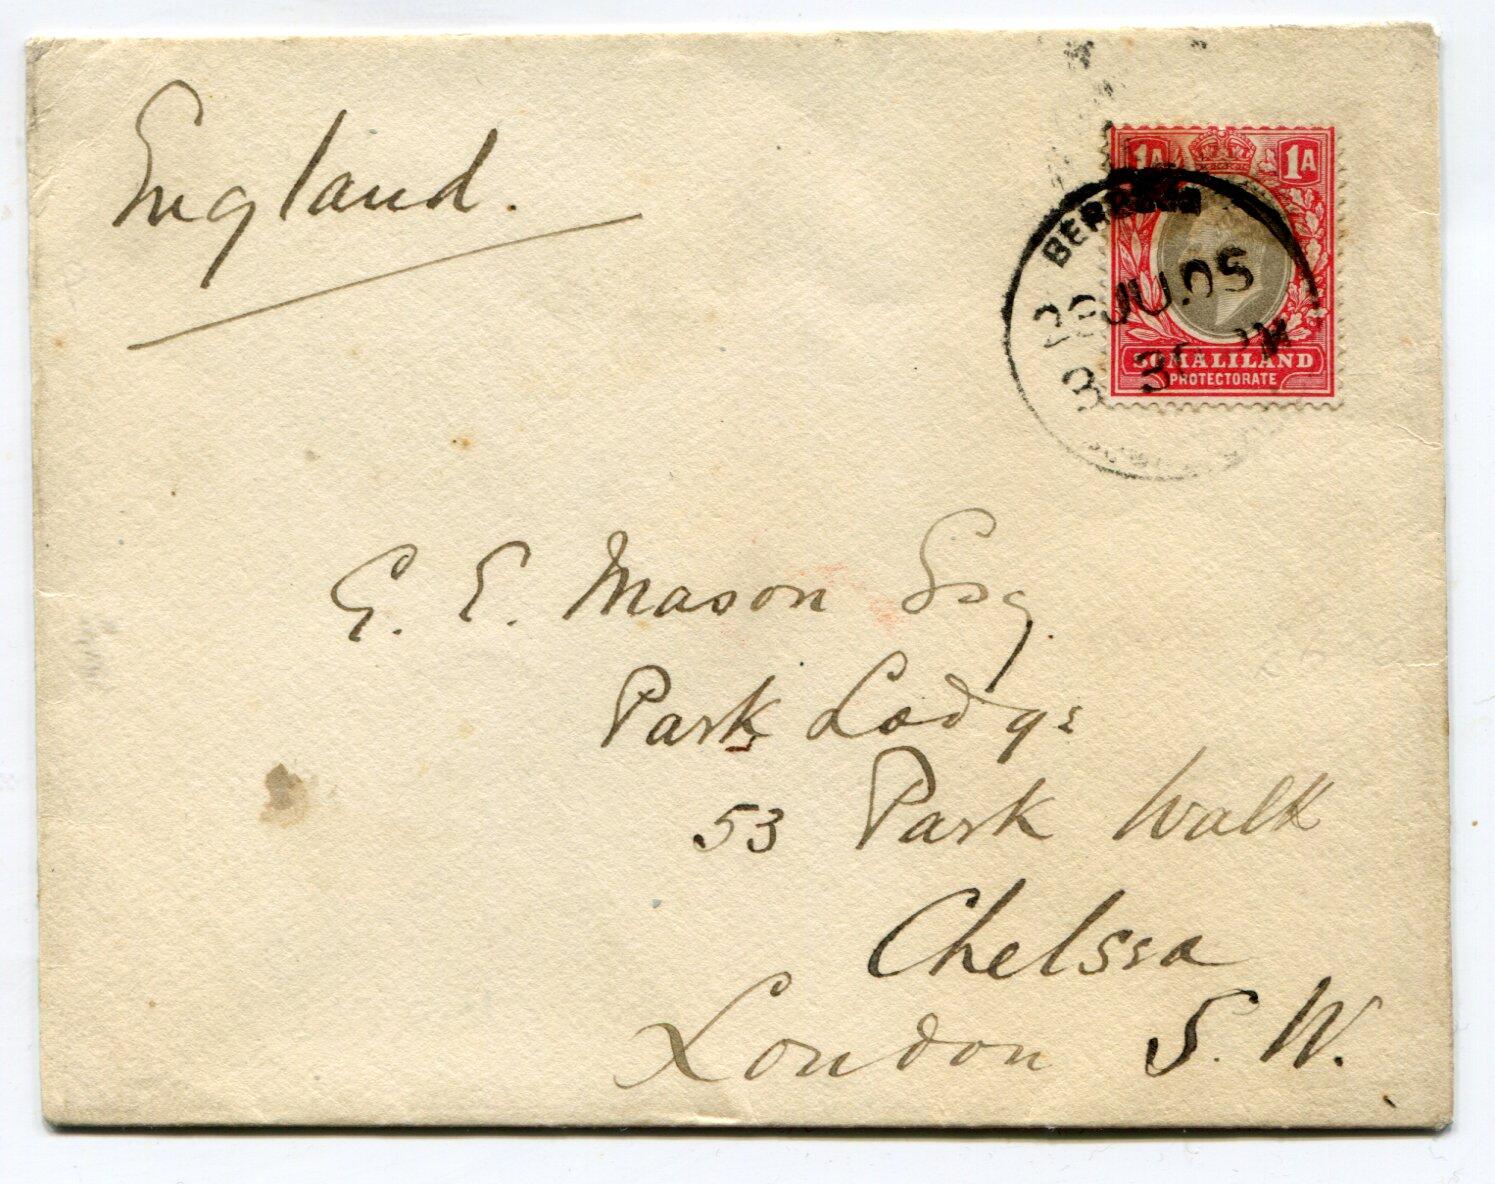 England.
1A 1A
BERBERA
JU.05
3 30 PM
SOMALILAND
PROTECTORATE
G. E. Mason Esq.
Park Lodge
53 Park Walk
Chelsea
London S. W.